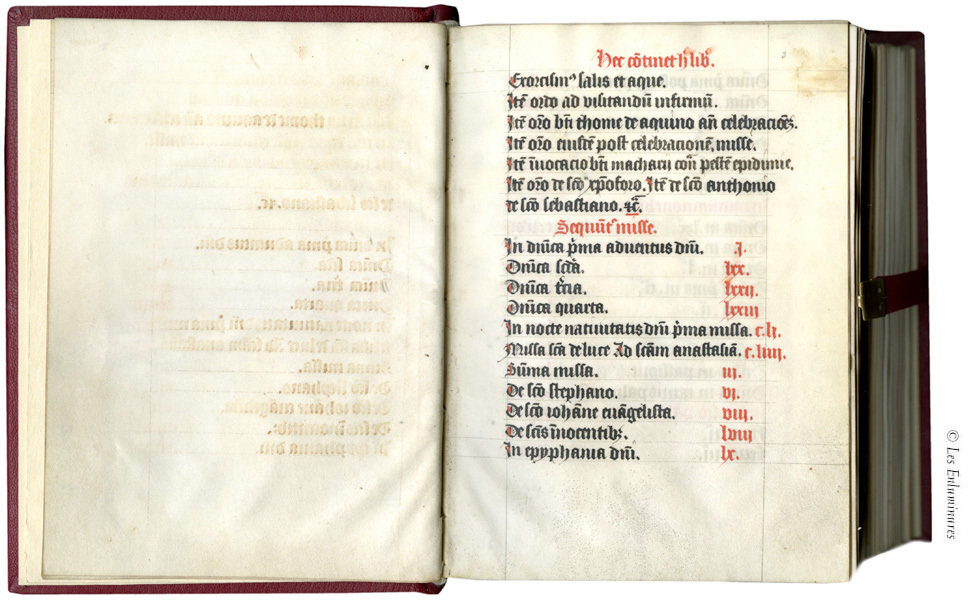 Hec cōtinet h' lib'.
Exorcism' salis et aque.
Itē ordo ad visitandū infirmū.
Itē orō bti thome de aquino añ celebracioēs.
Itē orō eiusdē post celebracionē misse.
Itē īuocacio bti macharii con̄ pestē epidimie.
Itē orō de scō xp̄oforo. Itē de scō anthonio
de scō sebastiano. ⁊c̄.
Sequūt' misse.
In dnīca p̄ma aduentus dnī. j.
Dnīca scd̄a. lxx.
Dnīca t̄cia. lxxij
Dnīca quarta. lxxiij
In nocte natiuitatis dnī p̄ma missa. c.lj.
Missa scd̄a de luce Ad scām anastasiā. c.liij.
Sūma missa. iij.
De scō stephano. vj.
De scō iohāne euāgelista. viij.
De scīs īnocentib'. lviij
In epyphania dnī. lx.
3
© Les Enluminures